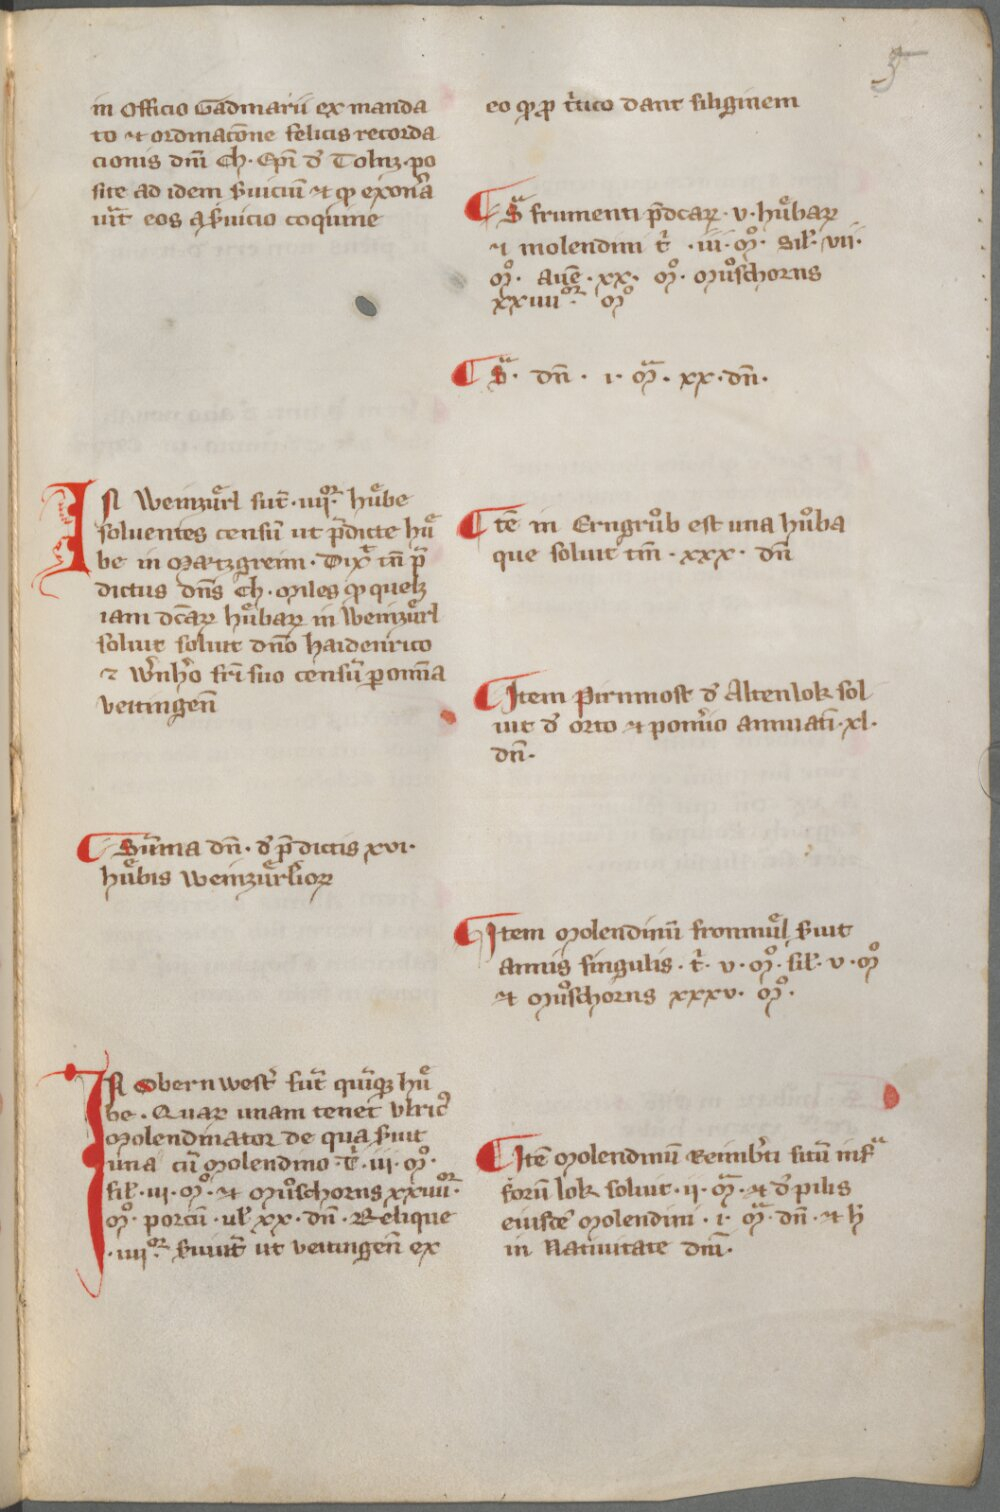 5
in Officio Gadmarii ex manda
to et ordinac̄one felicis recorda
cionis dn̄i Ch. Ep̄i d̕ Tolnz po
site ad idem s̕uiciū et qͥ exon̕a
ua̕t eos a s̕uicio coquine
IN Weinzuͤrl sūt · iiijͦʳ. huͤbe
soluentes censū ut p̄dicte huͤ
be in Martzgreim. Dix̕ tn̄ p̄
dictus dn̄s Ch. Miles qͥ quelꝫ
iam dc̄aꝝ huͤbaꝝ in Weinzuͤrl
soluit soluit dn̄o haidenrico
⁊ W̕nh̕o fr̄i suo censū ꝑ om̄ia
veitingen̄
Sum̄a dn̄. d̕ p̄dictis xvi.
huͤbis Weinzuͤrl̕ioꝝ
IN Obernwest̕ sūt quīqꝫ huͤ
be. Quaꝝ unam tenet Ulric̕
Molendinator de qua s̕uit
una cū Molendino. T̕. iii. Mͦ.
sil̕. iii. Mͦ. et Muͦschorns xxiiiiͦʳ.
Mͦ. porcū. ul̕ xx. dn̄. Relique
. iiijͦʳ. s̕uiūt ut veitingen̄ ex
eo qͥ p t̕tico dant siliginem
Sᵃ frumenti p̄dcaꝝ. v. huͤbaꝝ
et molendini t̕. iii. Mͦ. Sil̕. vii.
Mͦ. auē. xx. Mͦ. Muͦschorns
xxiiiiͦʳ. Mͦ
Sᵃ. dn̄. i. Mᵃ. xx. dn̄.
Itē in Erngruͦb est una huͦba
que soluit tm̄. xxx. dn̄
Item Pirnmost d̕ Altenlok sol
uit d̕ orto et pom̕io annuati̅. xl.
dn̄.
Item Molendinū fronmuͤl s̕uit
annis singulis. t̕. v. Mͦ. sil̕. v. Mͦ
et Muͦschorns xxxv. Mͦ.
Itē Molendinū Reimb̕ti sitū infᵃ
forū lok soluit. ii. Mᵃ. et d̕ pilis
eiusdē Molendini. i. Mᵃ. dn̄. et h̕
in Natiuitate dn̄i.